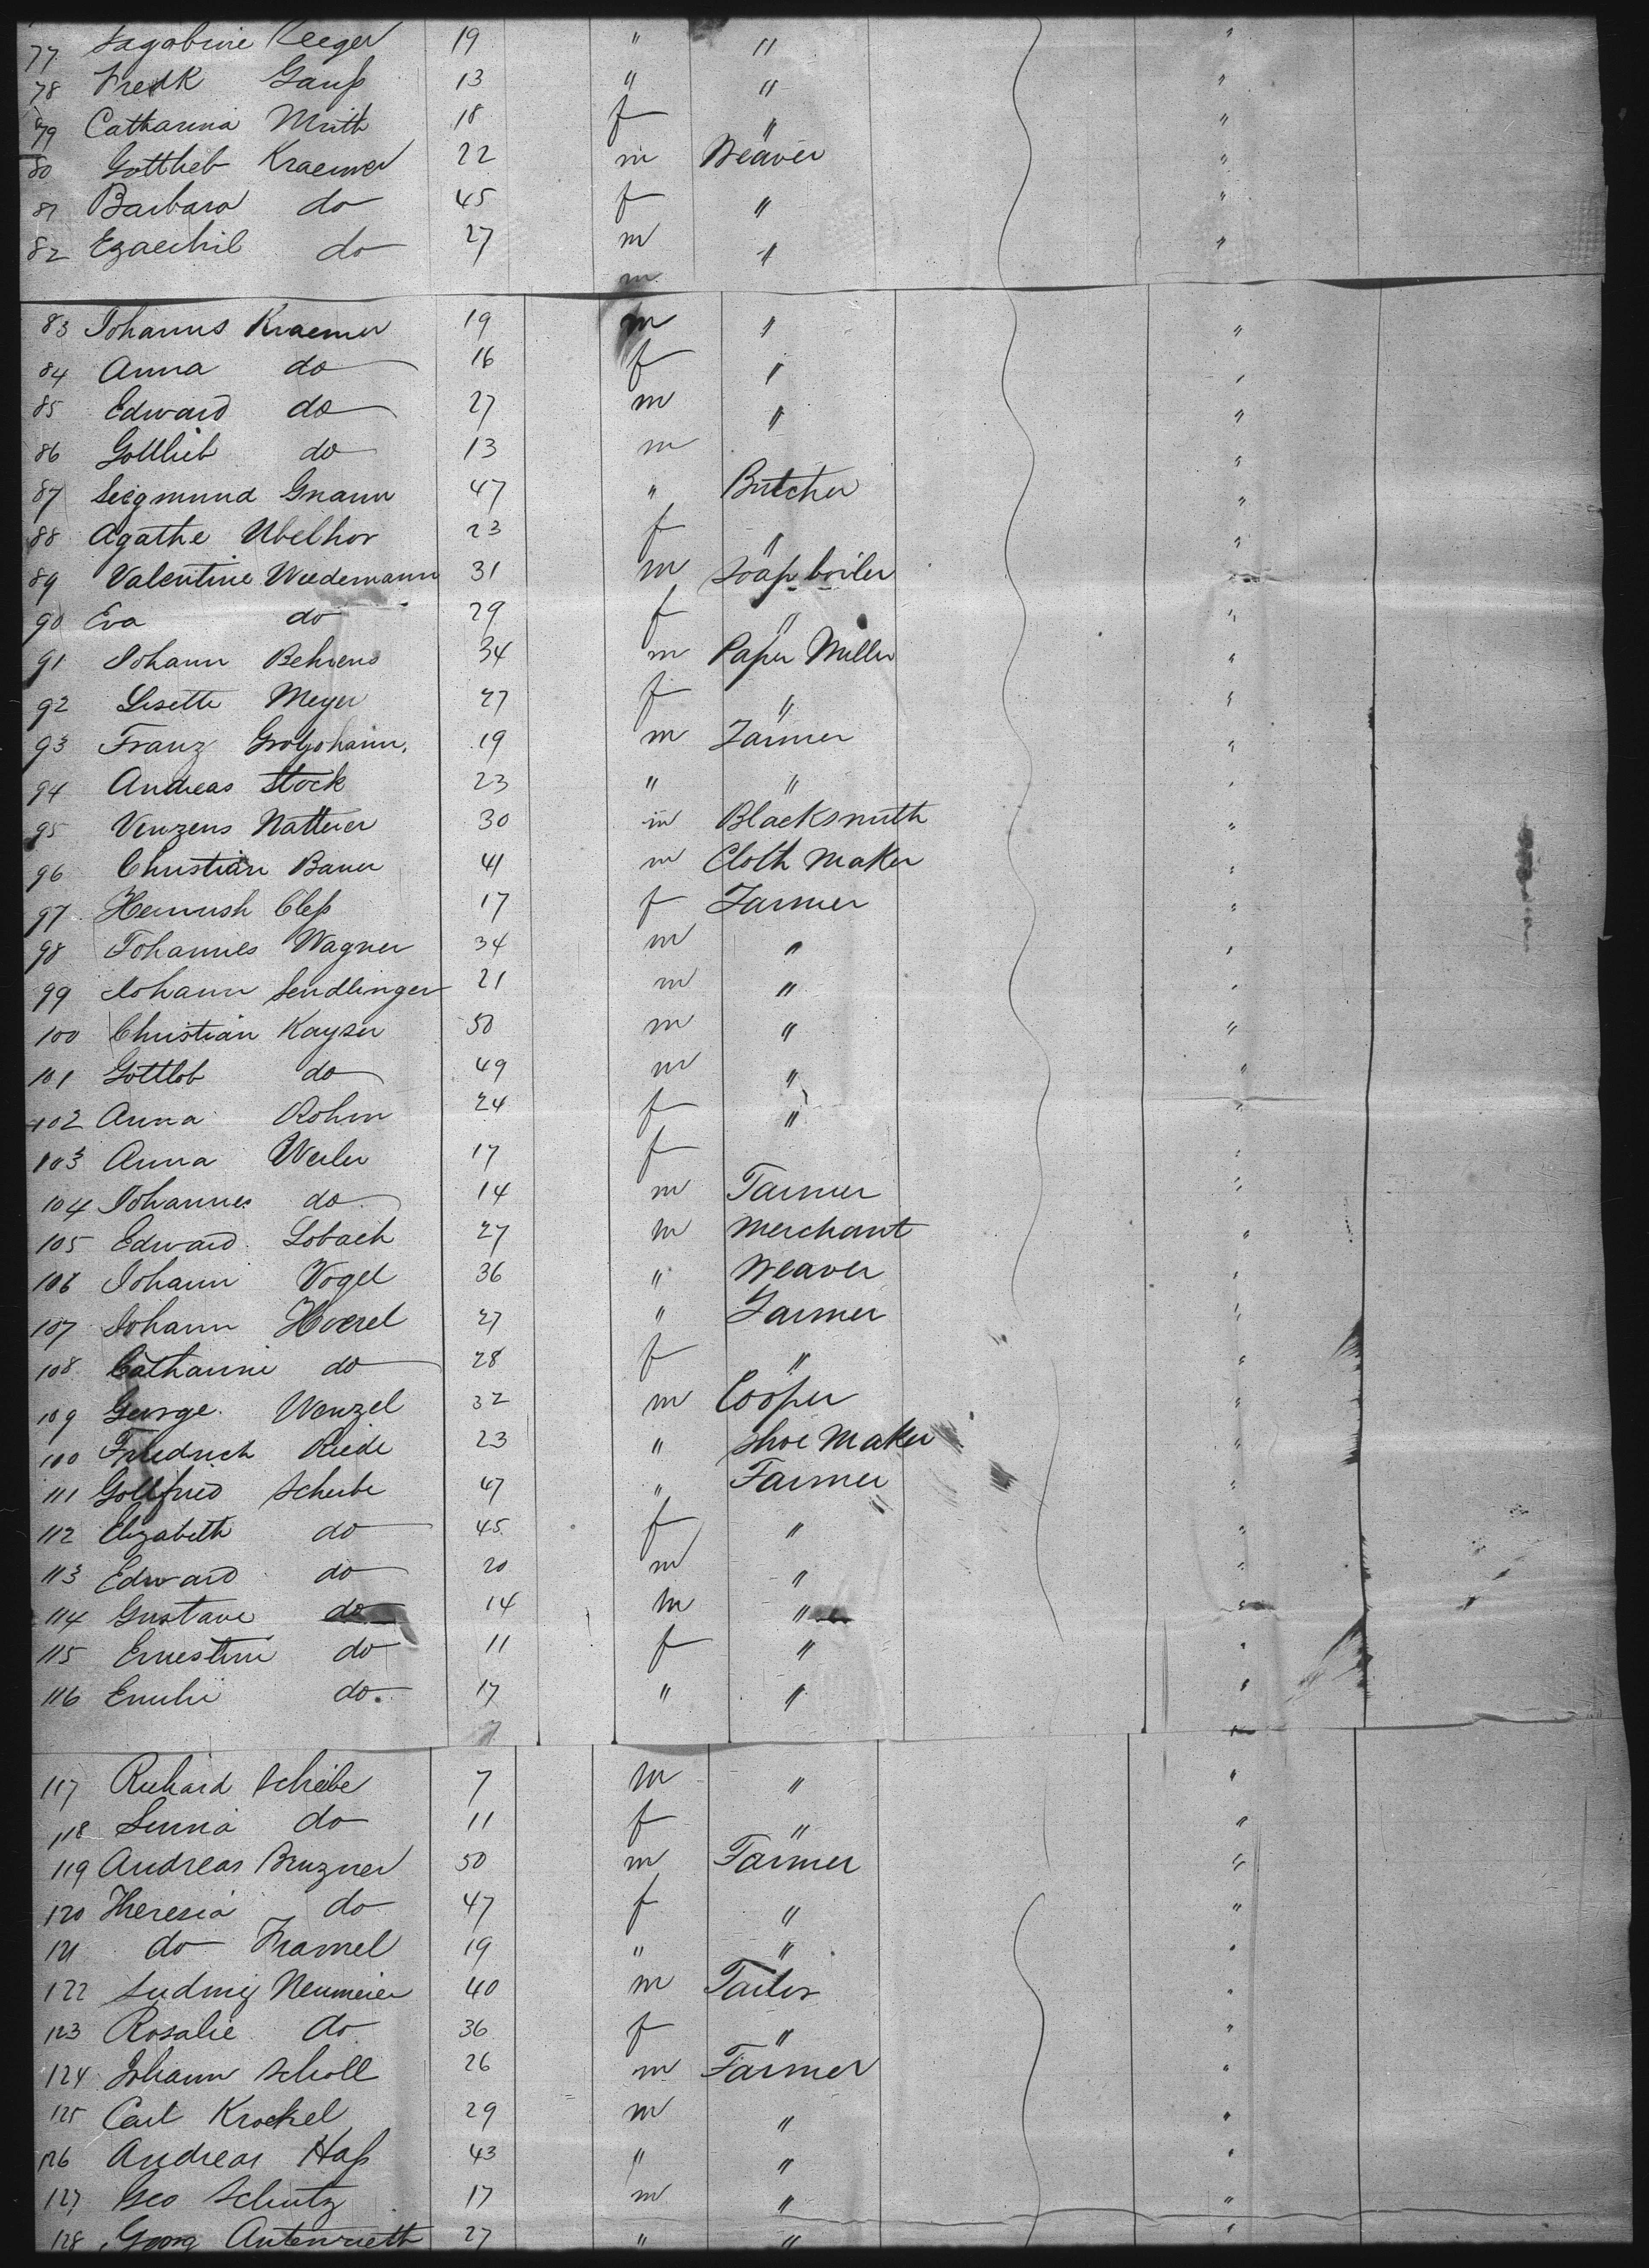 77 Jagobine Keeger 19 " " "
78 Fredk Gauß 13 " " "
79 Catharina Mrith 18 f " "
80 Gottlieb Kraemer 22 m Weaver "
81 Barbara do 45 f " "
82 Ezaechil do 27 m " "
m
83 Johanns Kraemer 19 m " "
84 Anna do 16 f " "
85 Edward do 27 m " "
86 Gottlieb do 13 m "
87 Seigmund Gnann 47 " Butcher "
88 Agathe Ubelhor 23 f " "
89 Valentine Wiedemann 31 m Soap boiler "
90 Eva do 29 f " "
91 Johann Behrens 34 m Paper Miller "
92 Lisette Meyer 27 f " "
93 Franz Grotjohann. 19 m Farmer "
94 Andreas Stock 23 " " "
95 Vinzens Natterer 30 m Blacksmith "
96 Christian Bauer 41 m Cloth Maker "
97 Heinrish Cleß 17 f Farmer "
98 Johannes Wagner 34 m " "
99 Johann Sendlinger 21 m " "
100 Christian Kayser 50 m " "
101 Gottlob do 49 m " "
102 Anna Rohm 24 f " "
103 Anna Weiler 17 f "
104 Johannes do 14 m Farmer "
105 Edward Lobach 27 m Merchant "
106 Johann Vogel 36 " Weaver "
107 Johann Hoerel 27 " Farmer "
108 Catharine do 28 f " "
109 George Wenzel 32 m Cooper "
100 Friedrich Riede 23 " Shoe Maker "
111 Gottfried Scheibe 47 " Farmer "
112 Elizabeth do 45 f " "
113 Edward do 20 m " "
114 Gustave do 14 m " "
115 Ernestine do 11 f " "
116 Emilie do 17 " " "
117 Richard Scheibe 7 m " "
118 Linna do 11 f " "
119 Andreas Bruzner 50 m Farmer "
120 Theresia do 47 f " "
121 do Framel 19 " " "
122 Ludwig Neumeier 40 m Tailor "
123 Rosalie do 36 f " "
124 Johann Scholl 26 m Farmer "
125 Carl Krockel 29 m " "
126 Andreas Haß 43 " " "
127 Geo Schutz 17 m " "
128 Georg Autenrieth 27 " " "